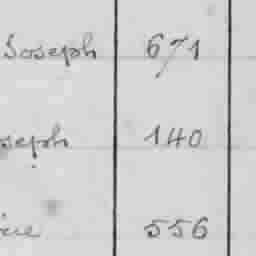 Joseph 671
oseph 140
556